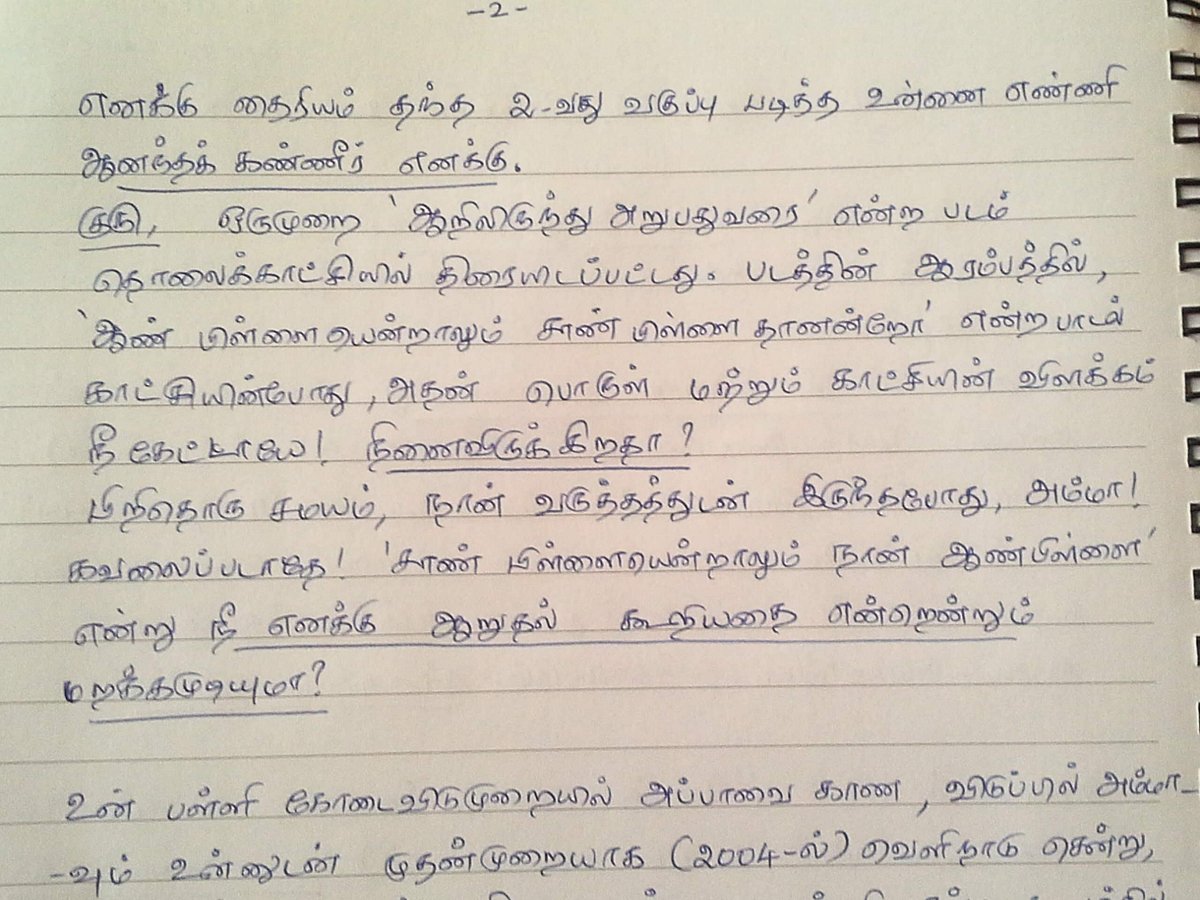 -2-
எனக்கு தைரியம் தந்த 2-வது வகுப்பு படித்த உன்னை எண்ணி
ஆனந்தக் கண்ணீர் எனக்கு.
குரு, ஒருமுறை 'ஆறிலிருந்து அறுபதுவரை' என்ற படம்
தொலைக்காட்சியில் திரையிடப்பட்டது. படத்தின் ஆரம்பத்தில்,
'ஆண் பிள்ளையென்றாலும் சாண் பிள்ளை தானன்றோ' என்ற பாடல்
காட்சியின்போது, அதன் பொருள் மற்றும் காட்சியின் விளக்கம்
நீ கேட்டாயே! நினைவிருக்கிறதா?
பிறிதொரு சமயம், நான் வருத்தத்துடன் இருந்தபோது, அம்மா!
கவலைப்படாதே! 'சாண் பிள்ளையென்றாலும் நான் ஆண்பிள்ளை'
என்று நீ எனக்கு ஆறுதல் கூறியதை என்றென்றும்
மறக்கமுடியுமா?
உன் பள்ளி கோடைவிடுமுறையில் அப்பாவை காண, விருப்பில் அம்மா-
-வும் உன்னுடன் முதன்முறையாக (2004-ல்) வெளிநாடு சென்று,